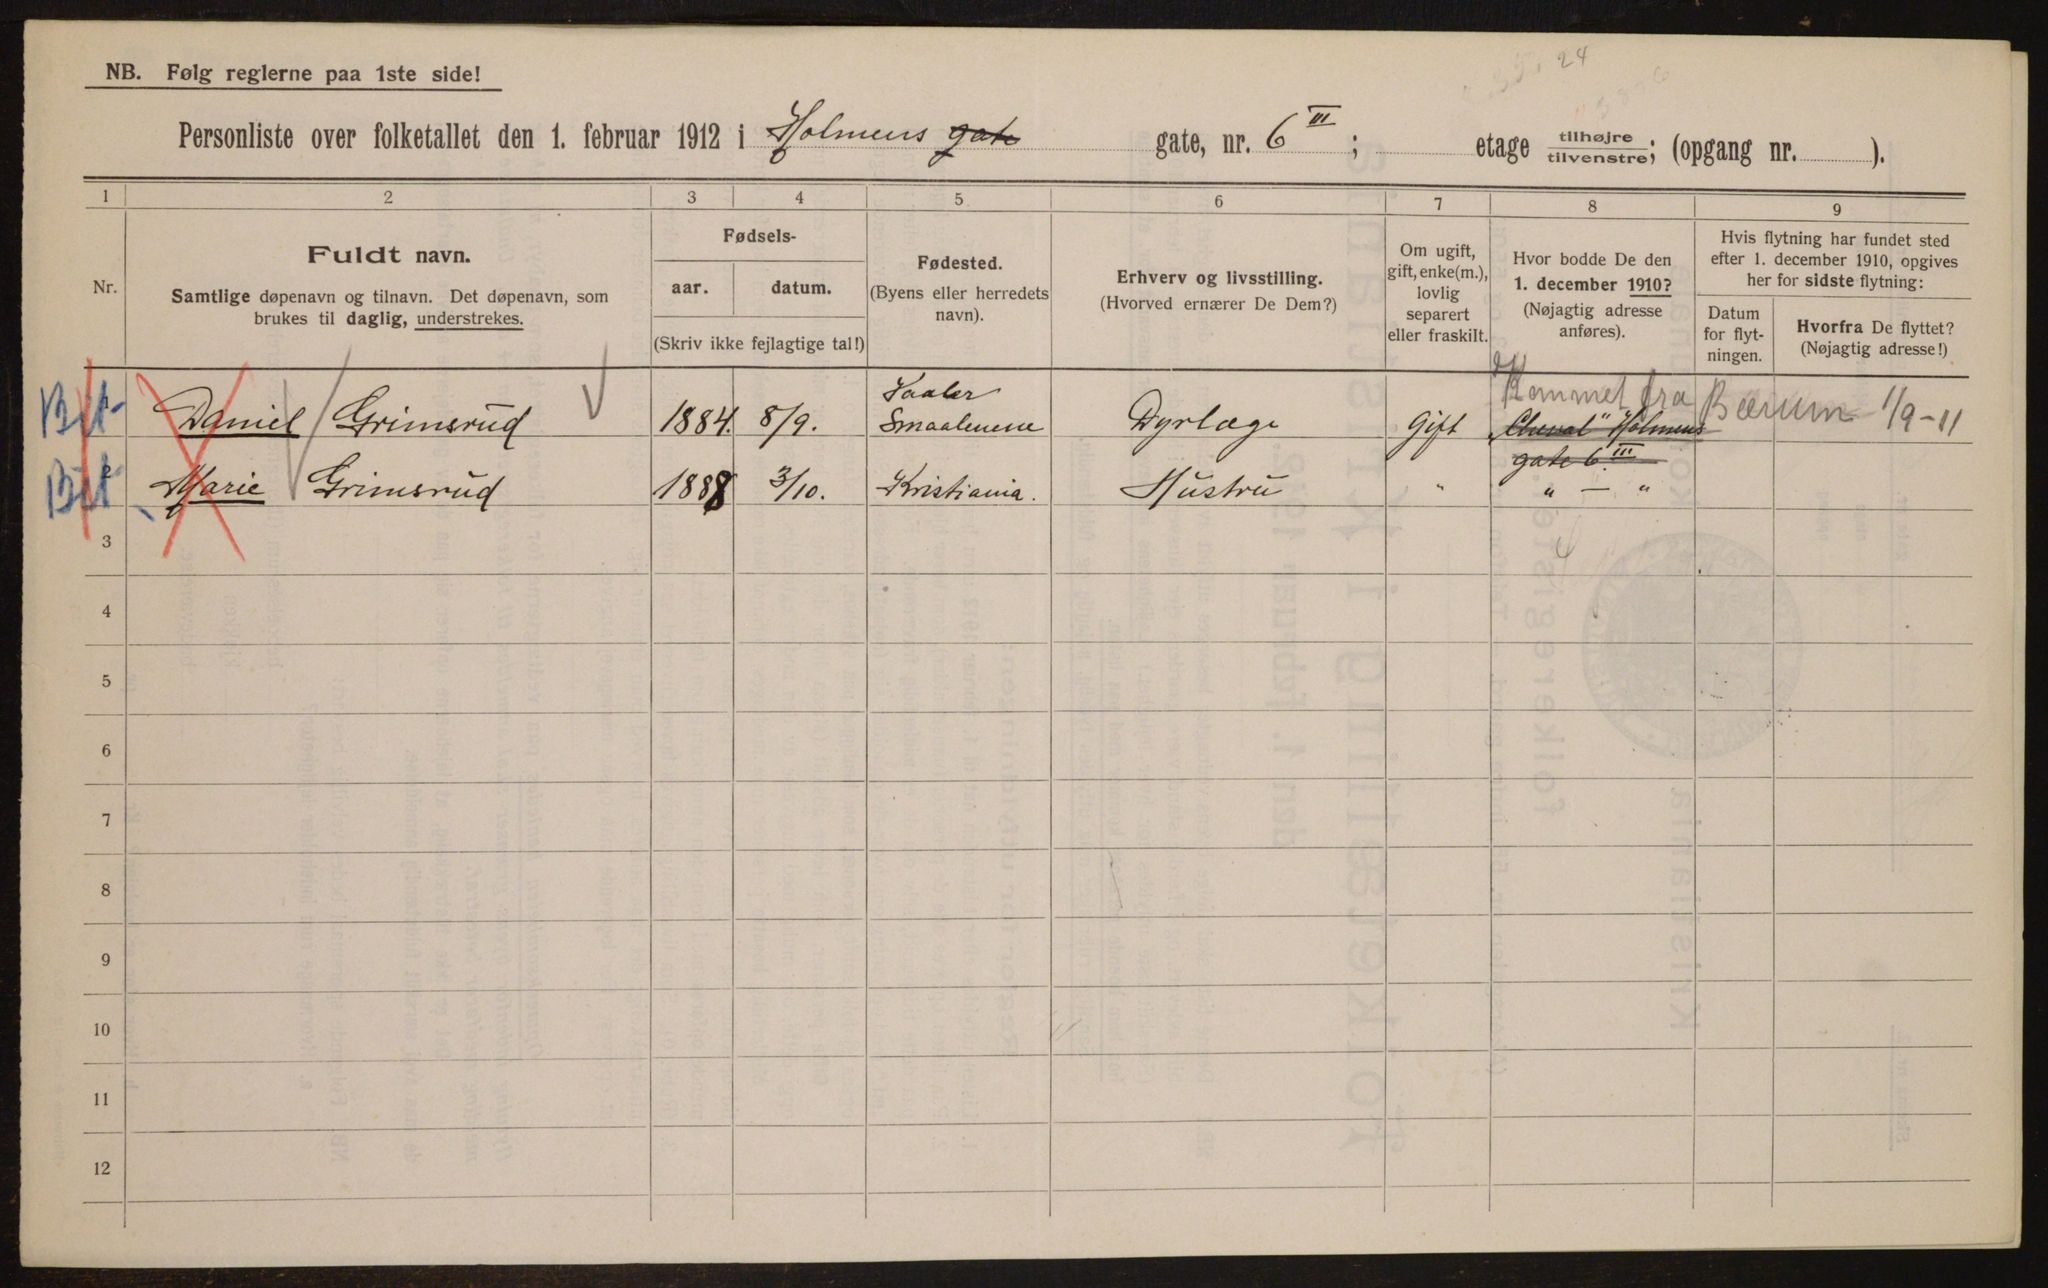 24
NB. Følg reglerne paa 1ste side!
Personliste over folketallet den 1. februar 1912 i Holmens gate gate, nr. 6 III ; etage tilhøjre / tilvenstre; (opgang nr. ).
1 2 3 4 5 6 7 8 9
Nr.
Fuldt navn.
Samtlige døpenavn og tilnavn. Det døpenavn, som
brukes til daglig, understrekes.
Fødsels-
aar. datum.
(Skriv ikke fejlagtige tal!)
Fødested.
(Byens eller herredets
navn).
Erhverv og livsstilling.
(Hvorved ernærer De Dem?)
Om ugift,
gift, enke(m.),
lovlig
separert
eller fraskilt.
Hvor bodde De den
1. december 1910?
(Nøjagtig adresse
anføres).
Hvis flytning har fundet sted
efter 1. december 1910, opgives
her for sidste flytning:
Datum
for flyt-
ningen.
Hvorfra De flyttet?
(Nøjagtig adresse!)
Kommet fra Bærum 1/9-11
1 Daniel Grimsrud 1884. 8/9. Vaaler Smaalenene Dyrlæge Gift "Cheval" Holmens
gate 6 III
2 Marie Grimsrud 1888 3/10. Kristiania. Hustru " " — "
3
4
5
6
7
8
9
10
11
12